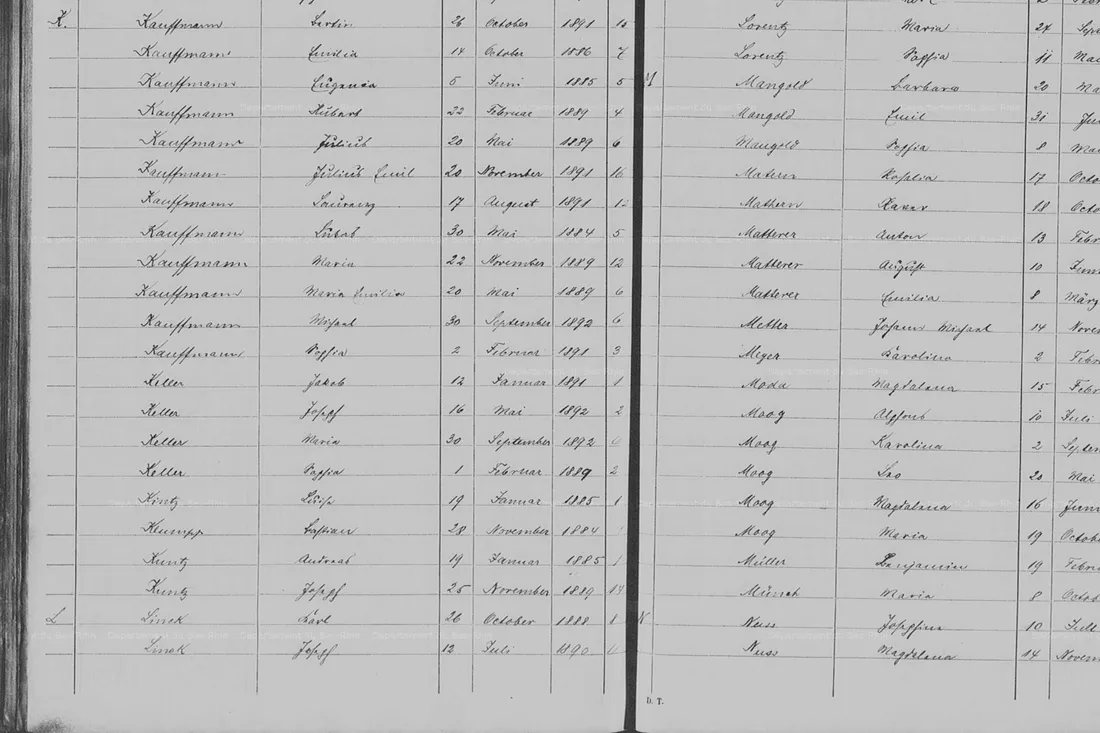 K. Kauffmann 26 October 1891
Kauffmann Emilia 14 October 1886 7
Kauffmann Eugenia 5 Juni 1885 5
Kauffmann Hubert 22 Februar 1889 4
Kauffmann Julius 20 Mai 1889 6
Kauffmann Julius Emil 20 November 1891 16
Kauffmann Laurenz 17 August 1891 12
Kauffmann Lukas 30 Mai 1884 5
Kauffmann Maria 22 November 1889 12
Kauffmann Maria Emilia 20 Mai 1889 6
Kauffmann Michael 30 September 1892 6
Kauffmann Sophia 2 Februar 1891 3
Keller Jakob 12 Januar 1891 1
Keller Joseph 16 Mai 1892 2
Keller Maria 30 September 1892 6
Keller Sophia 1 Februar 1889 2
Kintz Luise 19 Januar 1885 1
Klumpp Bastian 28 November 1884
Kuntz Andreas 19 Januar 1885 1
Kuntz Joseph 25 November 1889 14
L Linck Karl 26 October 1888 8
Linck Joseph 12 Juli 1890
Lorentz Maria 24 Sept
Lorentz Sophia 11 Mai
M Mangold Barbara 20 Ma
Mangold Emil 31 Jun
Mangold Sophia 8 Mai
Matern Rosalia 17 Octo
Mathern Xaver 18 Octo
Matterer Anton 13 Febr
Matterer August 10 Juni
Matterer Emilia 8 März
Metter Johann Michael 14 Nove
Meyer Karolina 2 Febr
Moda Magdalena 15 Febr
Moog Alphons 10 Juli
Moog Karolina 2 Septem
Moog Leo 20 Mai
Moog Magdalena 16 Juni
Moog Maria 19 Octobe
Müller Benjamin 19 Febru
Münch Maria 8 Octob
N Nuss Josephina 10 Juli
Nuss Magdalena 14 Novem
D. T.
Département du Bas-Rhin